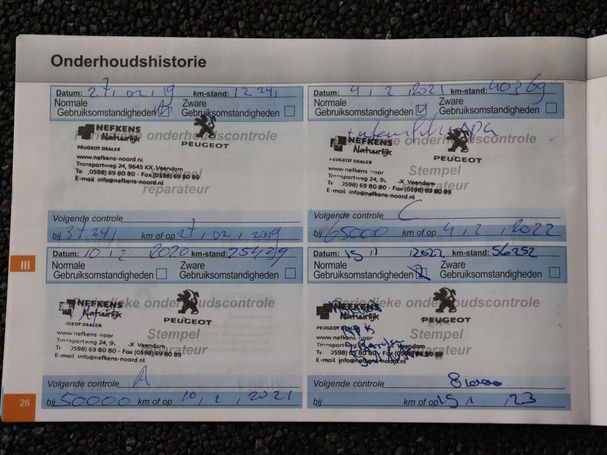 Onderhoudshistorie
Datum: 27, 02, 19 km-stand: 12241
Normale Gebruiksomstandigheden
Zware Gebruiksomstandigheden
Periodieke onderhoudscontrole
NEFKENS
Natuurlijk
PEUGEOT
PEUGEOT DEALER
www.nefkens-noord.nl
Transportweg 24, 9645 KX Veendam
Te (0598) 69 80 80 - Fax (0598) 69 80 89
E-mail info@nefkens-noord.nl
Stempel
reparateur
Volgende controle
bij 37241 km of op 27, 02, 2019
Datum: 4, 2, 2021 km-stand: 40369
Normale Gebruiksomstandigheden
Zware Gebruiksomstandigheden
onderhoudscontrole
NEFKENS
Natuurlijk
PEUGEOT
PEUGEOT DEALER
www.nefkens-noord.nl
Transportweg 24, KX Veendam
(0598) 69 80 80 - Fax (0598) 69 80 89
E-mail info@nefkens-noord.nl
Stempel
reparateur
Volgende controle C
bij 65000 km of op 4, 2, 2022
III
Datum: 10, 2 2020 km-stand: 25439
Normale Gebruiksomstandigheden
Zware Gebruiksomstandigheden
Periodieke onderhoudscontrole
NEFKENS
Natuurlijk
PEUGEOT
PEUGEOT DEALER
Transportweg 24, 9645 KX Veendam
(0598) 69 80 80 - Fax (0598) 69 80 89
E-mail info@nefkens-noord.nl
Stempel
reparateur
Volgende controle A
bij 50000 km of op 10, 2, 2021
Datum: 15, 11, 2022 km-stand: 56252
Normale Gebruiksomstandigheden
Zware Gebruiksomstandigheden
Periodieke onderhoudscontrole
PEUGEOT
Transportweg
(0598) 69 80 80 - Fax (0598) 69 80 89
E-mail info@nefkens-noord.nl
Stempel
reparateur
Volgende controle 81000
bij km of op 15, 11, 23
26